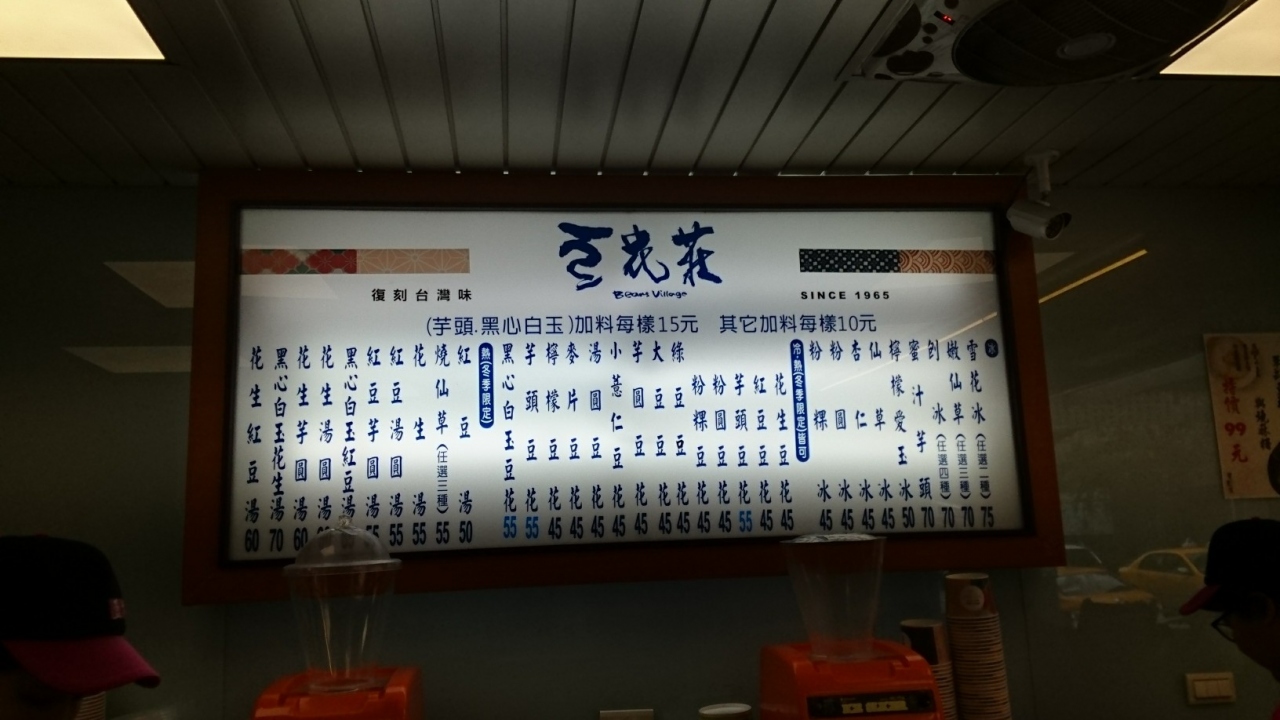 豆花莊
Beans Village
復刻台灣味
SINCE 1965
(芋頭.黑心白玉)加料每樣15元 其它加料每樣10元
冰
雪花冰(任選二種) 75
嫩仙草(任選三種) 70
刨冰(任選四種) 70
蜜汁芋頭 70
檸檬愛玉冰 50
仙草冰 45
杏仁冰 45
粉圓冰 45
粉粿冰 45
冷.熱(冬季限定)皆可
花生豆花 45
紅豆豆花 45
芋頭豆花 55
粉圓豆花 45
粉粿豆花 45
綠豆豆花 45
大豆豆花 45
芋圓豆花 45
小薏仁豆花 45
湯圓豆花 45
麥片豆花 45
檸檬豆花 45
芋頭豆花 55
黑心白玉豆花 55
熱(冬季限定)
紅豆湯 50
燒仙草(任選三種) 55
花生湯 55
紅豆湯圓 55
紅豆芋圓湯
黑心白玉紅豆湯
花生湯圓
花生芋圓湯 60
黑心白玉花生湯 70
花生紅豆湯 60
特價
99
元